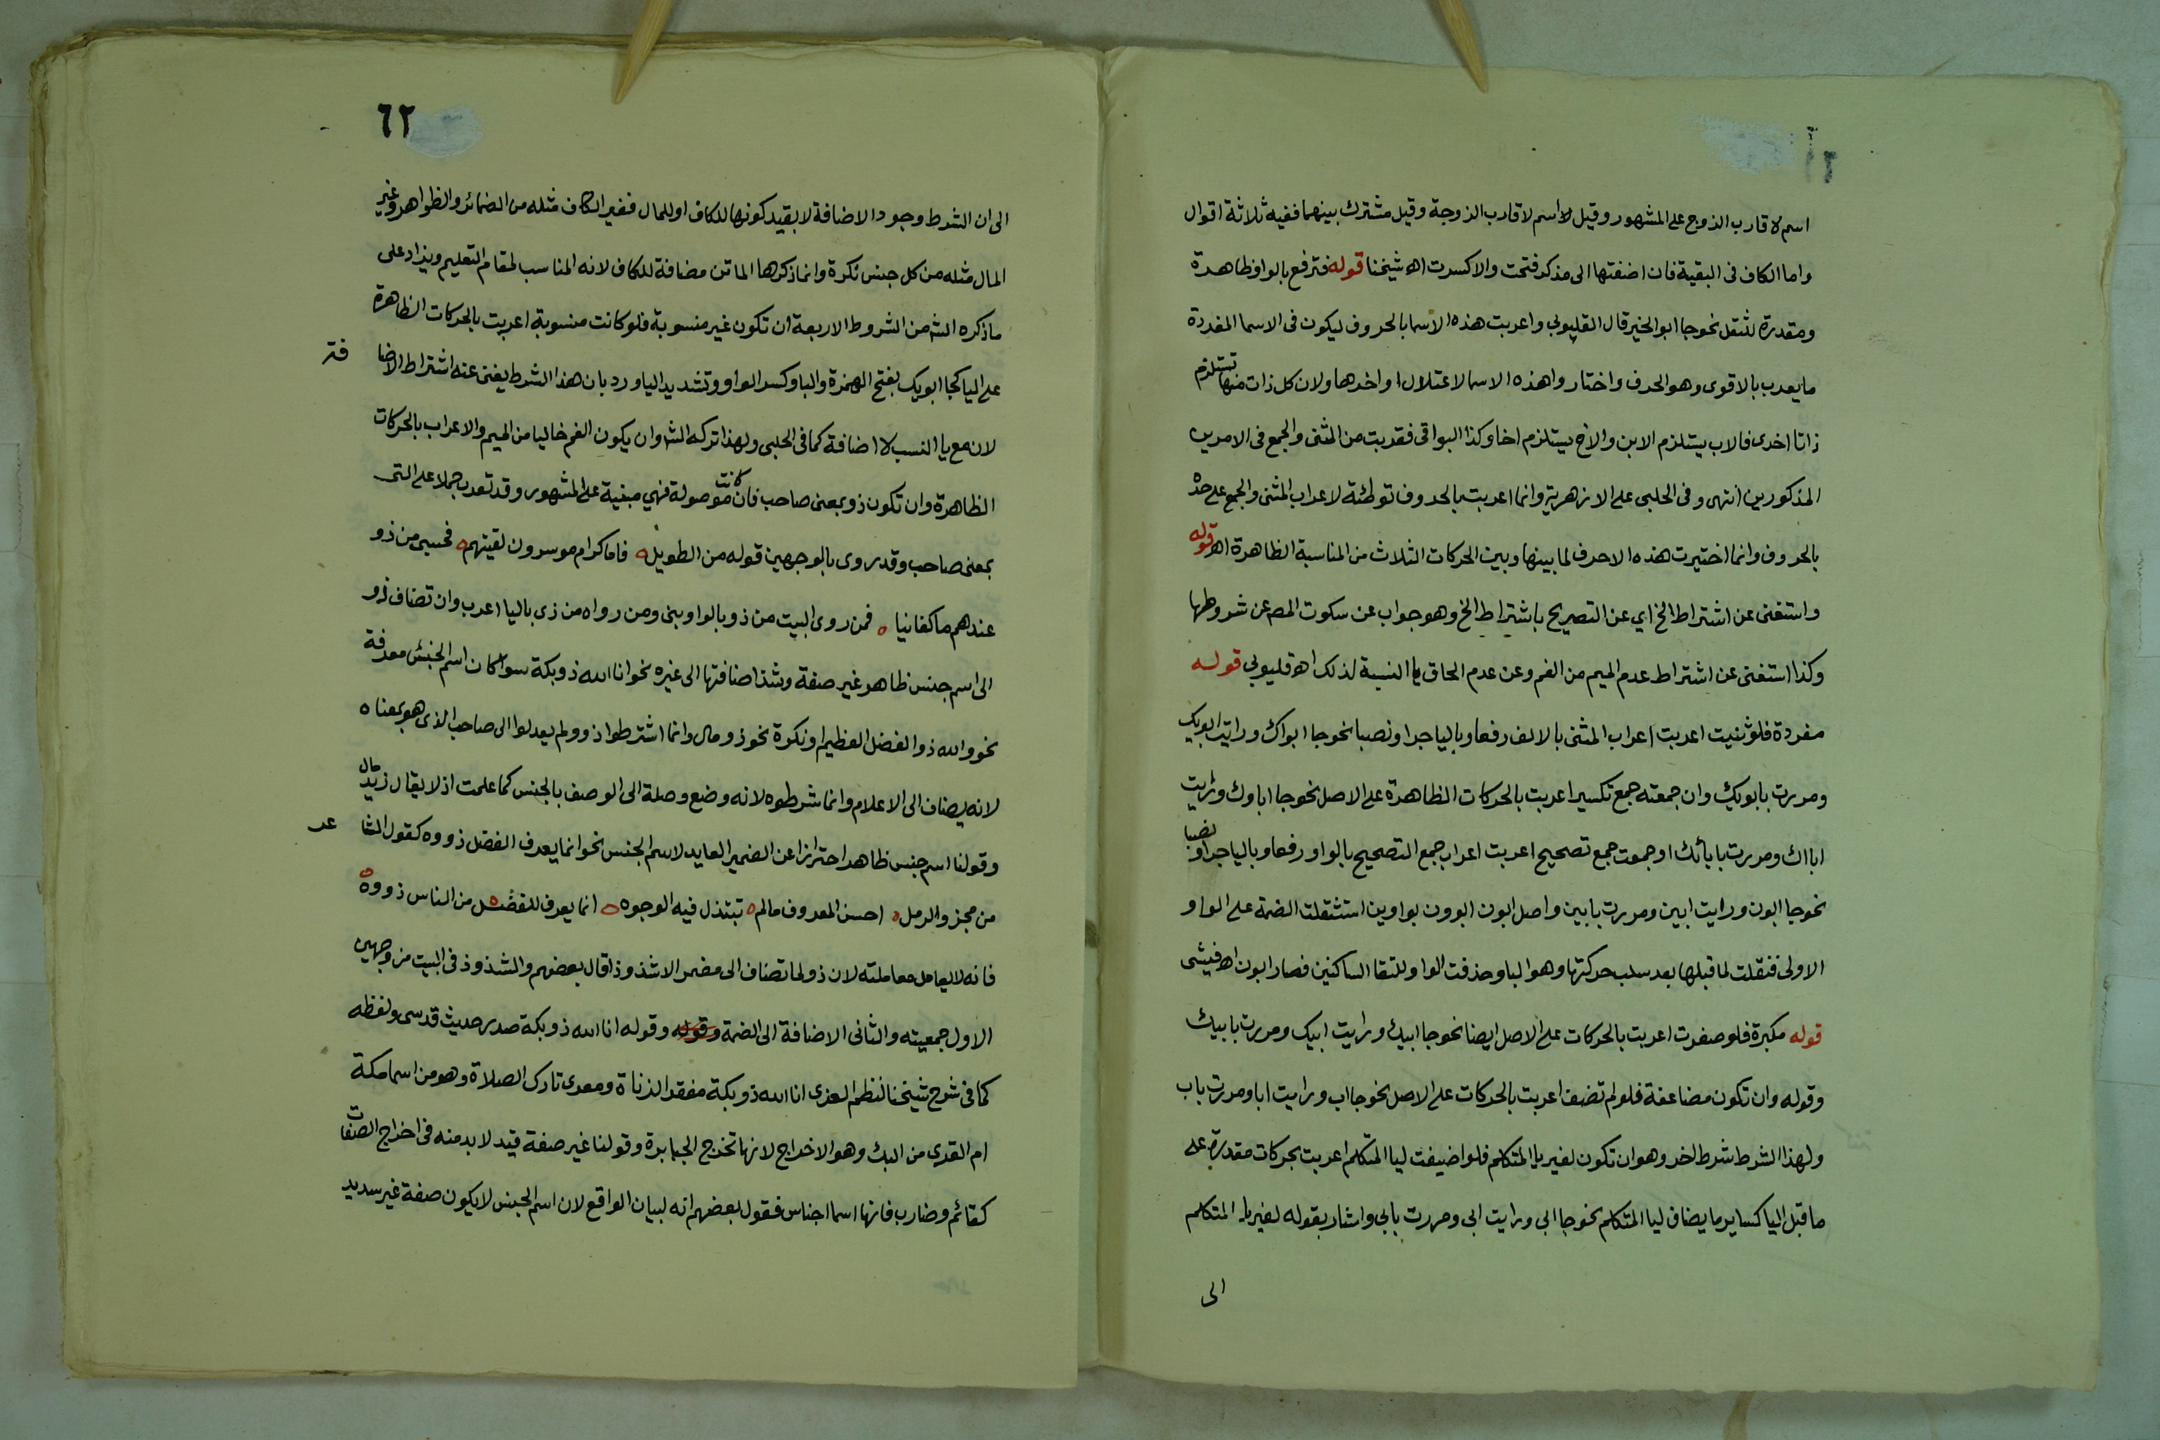 ٦١
اسم لاقارب الزوج على المشهور وقيل لاسم لاقارب الزوجة وقيل مشترك بينهما ففيه ثلاثة اقوال
واما الكاف فى البقية فان اضفتها الى مذكر فتحت والا كسرت اه شيخنا قوله فترفع بالواو ظاهرة
ومقدرة لثقل نحو جا ابو الخير قال القليوبي واعربت هذه الاسما بالحروف ليكون فى الاسما المفردة
ما يعرب بالاقوى وهو الحرف واختاروا هذه الاسما لاعتلال اواخرها ولان كل ذات منها تستلزم
ذاتا اخرى فالاب يستلزم الابن والاخ يستلزم اخا وكذا البواقى فقربت من المثنى والجمع فى الامرين
المذكورين انتهى وفى الحلبى على الازهرية وانما اعربت بالحروف توطئة لاعراب المثنى والجمع على حده
بالحروف وانما اختيرت هذه الاحرف لما بينها وبين الحركات الثلاث من المناسبة الظاهرة اه قوله
واستغنى عن اشتراط الخ اي عن التصريح باشتراط الخ وهو جواب عن سكوت المص عن شروطها
وكذا استغنى عن اشتراط عدم الميم من الفم وعن عدم الحاق يا النسبة لذلك اه قليوبي قوله
مفردة فلو ثنيت اعربت اعراب المثنى بالالف رفعا وباليا جرا ونصبا نحو جا ابواك ورايت ابويك
ومررت بابويك وان جمعته جمع تكسير اعربت بالحركات الظاهرة على الاصل نحو جا اباوك ورايت
اباك ومررت بابائك او جمعت جمع تصحيح اعربت اعراب جمع التصحيح بالواو رفعا وباليا جرا ونصبا
نحو جا ابون ورايت ابين ومررت بابين واصل ابون ابوون بواوين استثقلت الضمة على الواو
الاولى فنقلت لما قبلها بعد سلب حركتها وهو البا وحذفت الواو للتقا الساكنين فصار ابون اه فيشى
قوله مكبرة فلو صغرت اعربت بالحركات على الاصل ايضا نحو جا ابيك ورايت ابيك ومررت بابيك
وقوله وان تكون مضاعفة فلو لم تضف اعربت بالحركات على الاصل نحو جا اب ورايت ابا ومررت باب
ولهذا الشرط شرط اخر وهو ان تكون لغير يا المتكلم فلو اضيفت ليا المتكلم اعربت بحركات مقدرة على
ما قبل اليا كساير ما يضاف ليا المتكلم نحو جا ابي ورايت ابي ومررت بابي واشار بقوله لغير يا المتكلم
الى
٦٢
الى ان الشرط وجود الاضافة لا بقيد كونها للكاف او للمال فغير الكاف مثله من الضمائر والظواهر وغير
المال مثله من كل جنس نكرة وانما ذكرها الماتن مضافة للكاف لانه المناسب لمقام التعليم ويزاد على
ما ذكره الش من الشروط الاربعة ان تكون غير منسوبة فلو كانت منسوبة اعربت بالحركات الظاهرة
على اليا كجا ابويك بفتح الهمزة والبا وكسر الواو وتشديد اليا ورد بان هذا الشرط يغنى عنه اشتراط الاضا فته
لان مع يا النسب لا اضافة كما فى الحلبى ولهذا تركه الش وان يكون الفم خاليا من الميم والاعراب بالحركات
الظاهرة وان تكون ذو بمعنى صاحب فان كانت موصولة فهي مبنية على المشهور وقد تعرب حملا على التى
بمعنى صاحب وقد روى بالوجهين قوله من الطويل ه فاما كرام موسرون لقيتهم ه فحسبى من ذو
عندهم ما كفانيا ه فمن روى البيت من ذو بالواو بنى ومن رواه من ذى باليا اعرب وان تضاف ذو
الى اسم جنس ظاهر غير صفة وشذ اضافتها الى غيره نحو انا الله ذو بكة سوا كان اسم الجنس معرفة
نحو والله ذو الفضل العظيم او نكرة نحو ذو مال وانما اشترطوا ذو ولم يعدلوا الى صاحب الذى هو بمعناه
لانه يضاف الى الاعلام وانما شرطوه لانه وضع وصلة الى الوصف بالجنس كما علمت اذ لا يقال زيد مال
وقولنا اسم جنس ظاهر احترازا عن الضمير العايد لاسم الجنس نحو انما يعرف الفضل ذووه كقول الشا عر
من مجزو الرمل ه احسن المعروف مالم ه تبتذل فيه الوجوه ه انما يعرف للفضل من الناس ذووه ه
فانه لا يعامل معاملته لان ذو لما تضاف الى مضمر الا شذوذا قال بعضهم والشذوذ فى البيت من وجهين
الاول جمعيته والثانى الاضافة الى الضمة وقوله وقوله انا الله ذو بكة صدر حديث قدسى ولفظه
كما فى شرح شيخنا لنظم العزى انا الله ذو بكة مفقر الزناة ومعرى تارك الصلاة وهو من اسما مكة
ام القرى من البك وهو الاخراج لانها تخرج الجبابرة وقولنا غير صفة قيد لا بد منه فى اخراج الصفات
كقائم وضارب فانها اسما اجناس فقول بعضهم انه لبيان الواقع لان اسم الجنس لا يكون صفة غير سديد